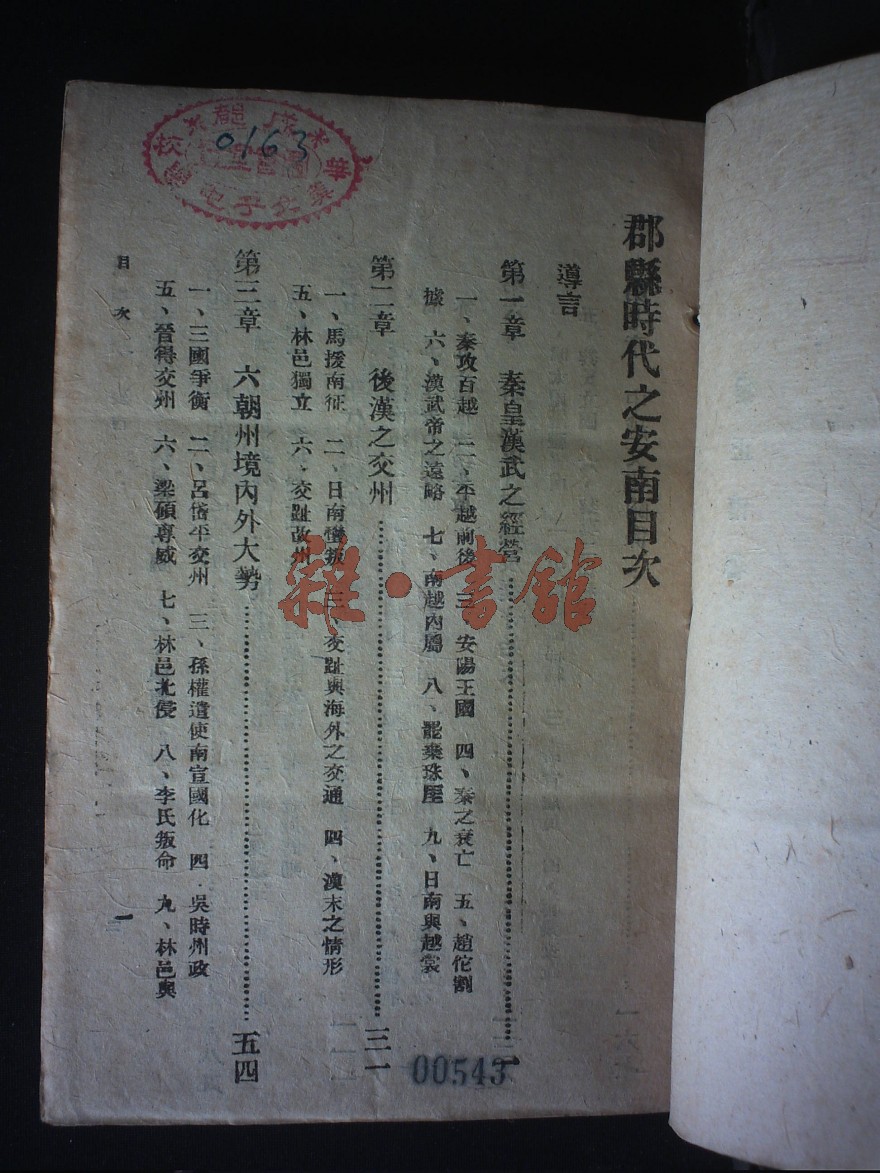 郡縣時代之安南目次
導言
第一章 秦皇漢武之經營…………一
一、秦攻百越 二、平越前後 三、安陽王國 四、秦之衰亡 五、趙佗割
據 六、漢武帝之遠略 七、南越內屬 八、罷棄珠厓 九、日南與越裳
第二章 後漢之交州…………三一
一、馬援南征 二、日南蠻叛 三、交趾與海外之交通 四、漢末之情形
五、林邑獨立 六、交趾故州
第三章 六朝州境內外大勢…………五四
一、三國爭衡 二、呂岱平交州 三、孫權遣使南宣國化 四、吳時州政
五、晉得交州 六、梁碩專威 七、林邑北侵 八、李氏叛命 九、林邑與
目次
一
0163
00543
雜·書館